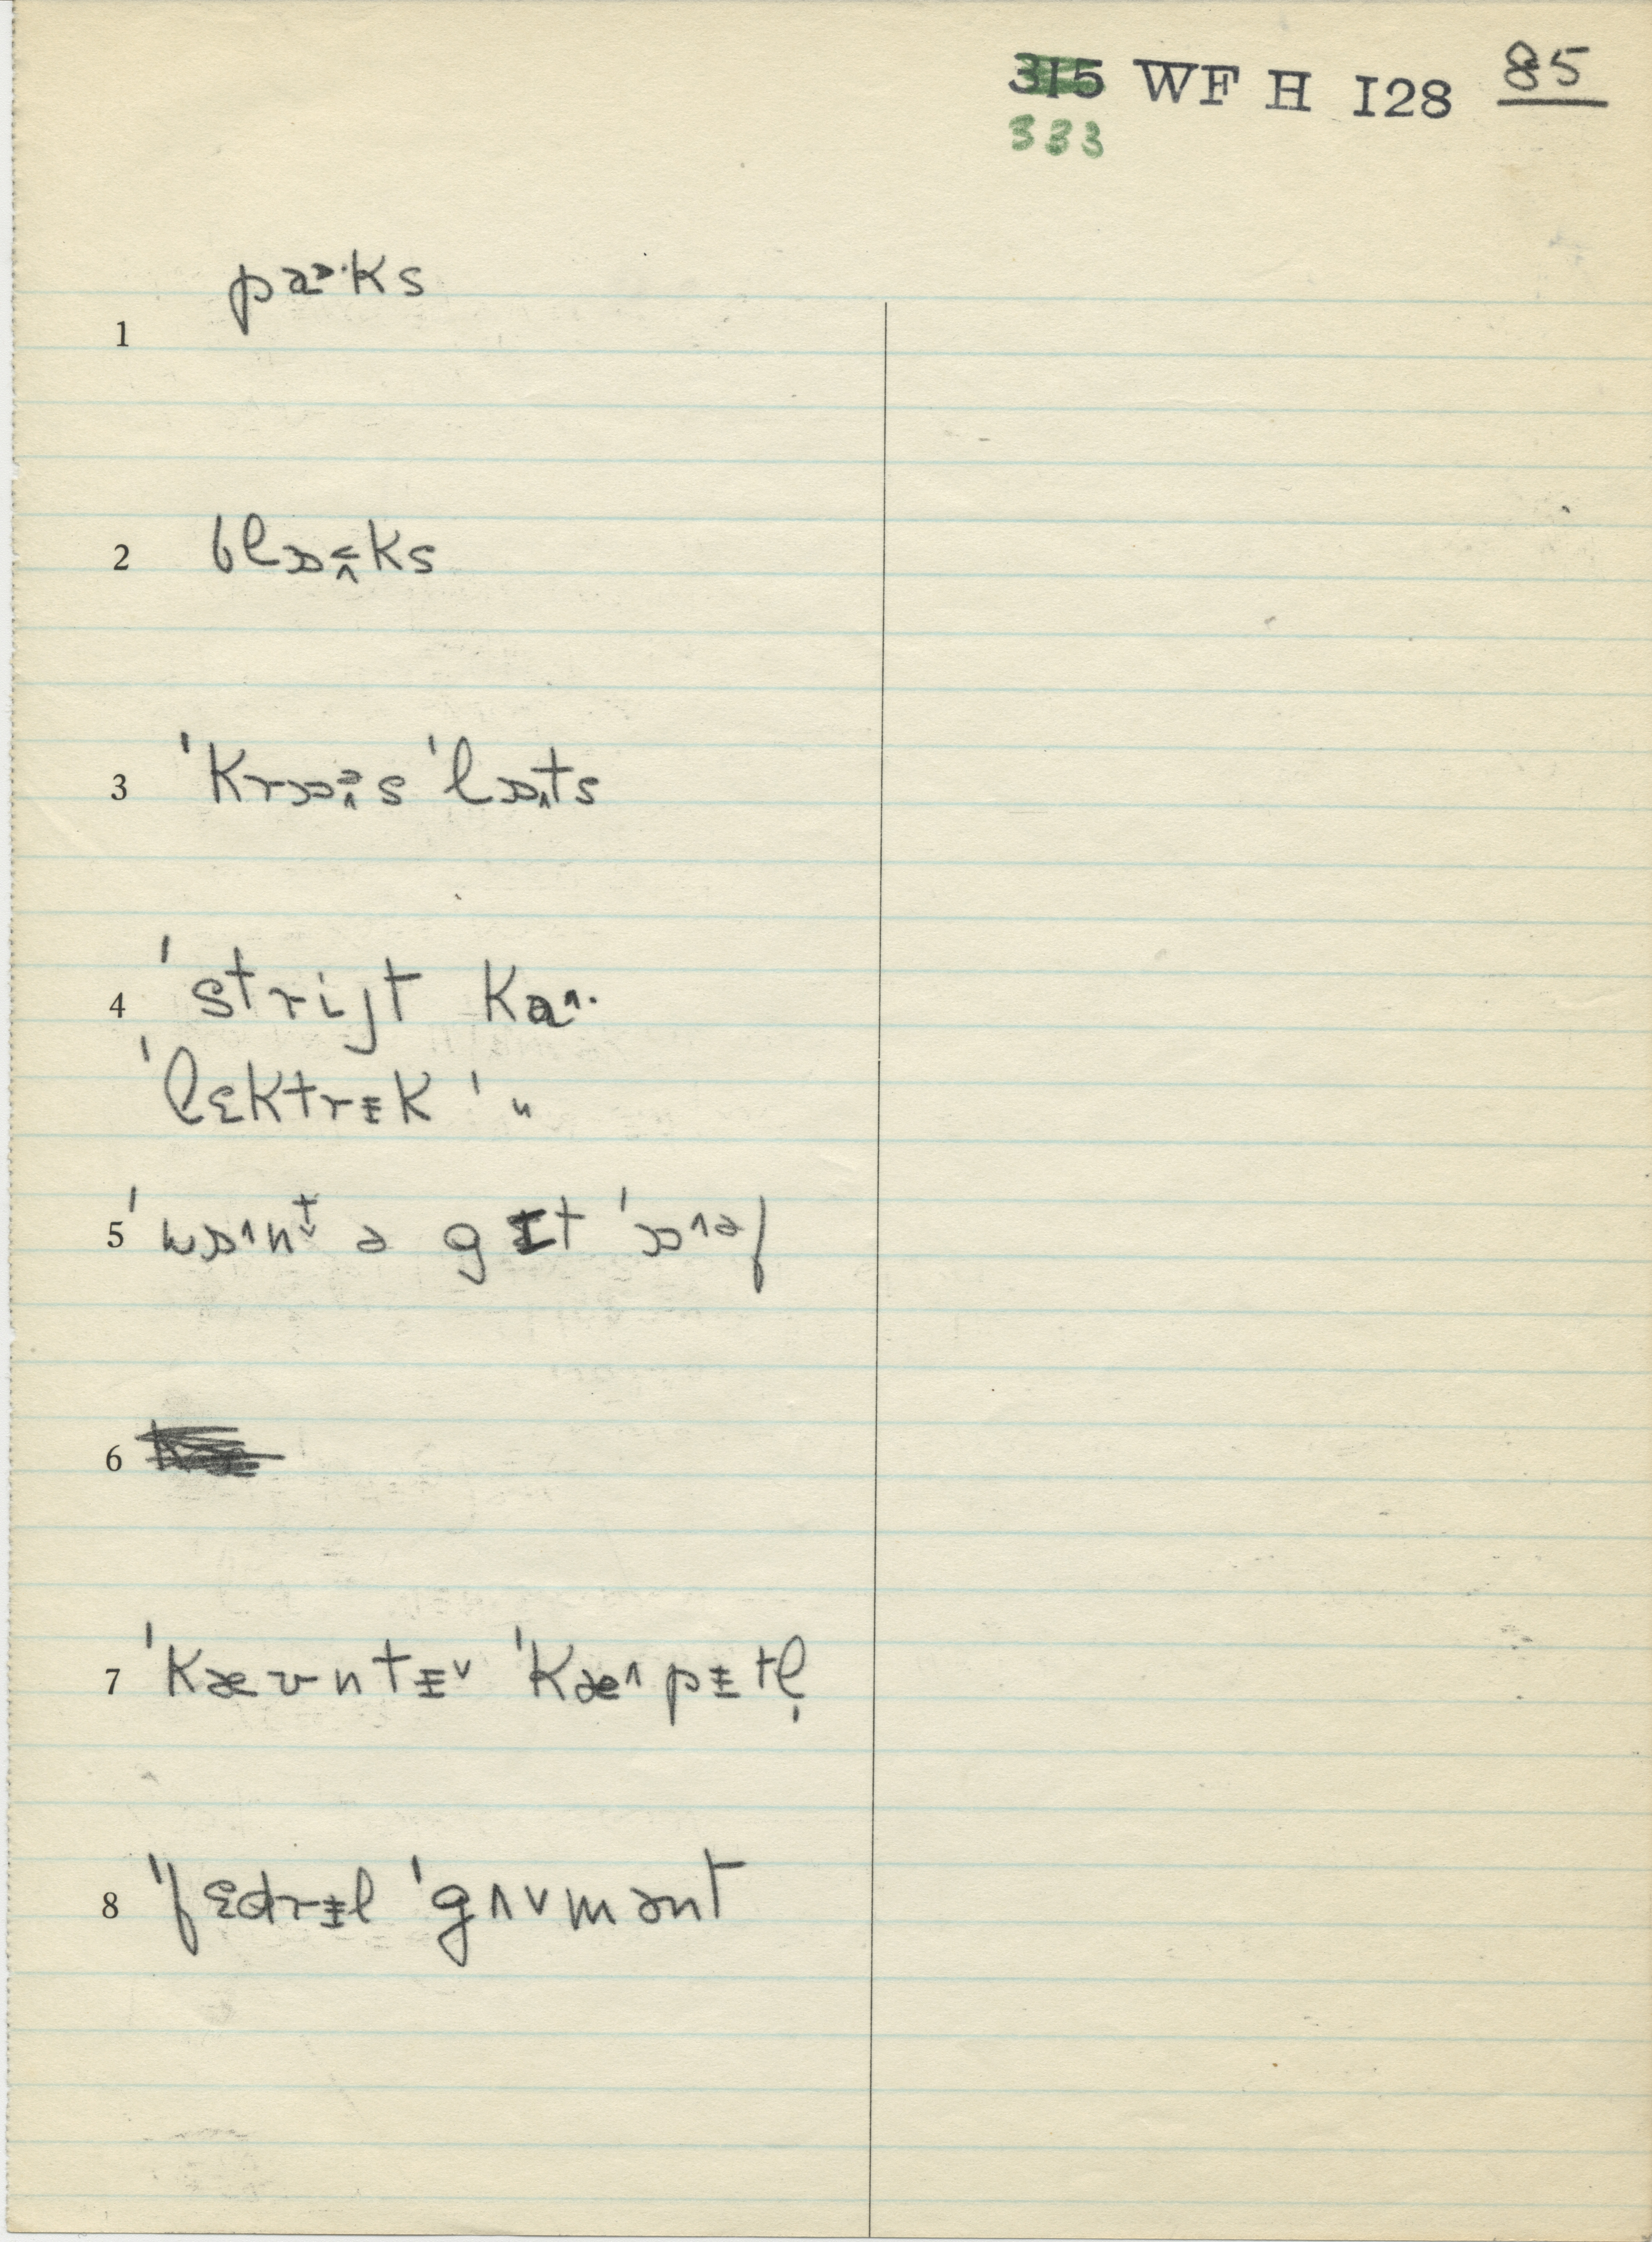 315 WF H I28 85
333
1 paɒ·ks
2 blɒɔ̭ks
3 ˈkrɒɔ̭s ˈlɒ̭ts
4 ˈstrijt ka^·
ˈlɛktrɪ̵k ˈ〃
5 ˈwɒ^nt̬ ə gɪt ˈɒ^əf
6
7 ˈkæʊntɪ̵˅ ˈkæ^pɪ̵tl̩
8 ˈfɛdrɪ̵l ˈgʌvmənt